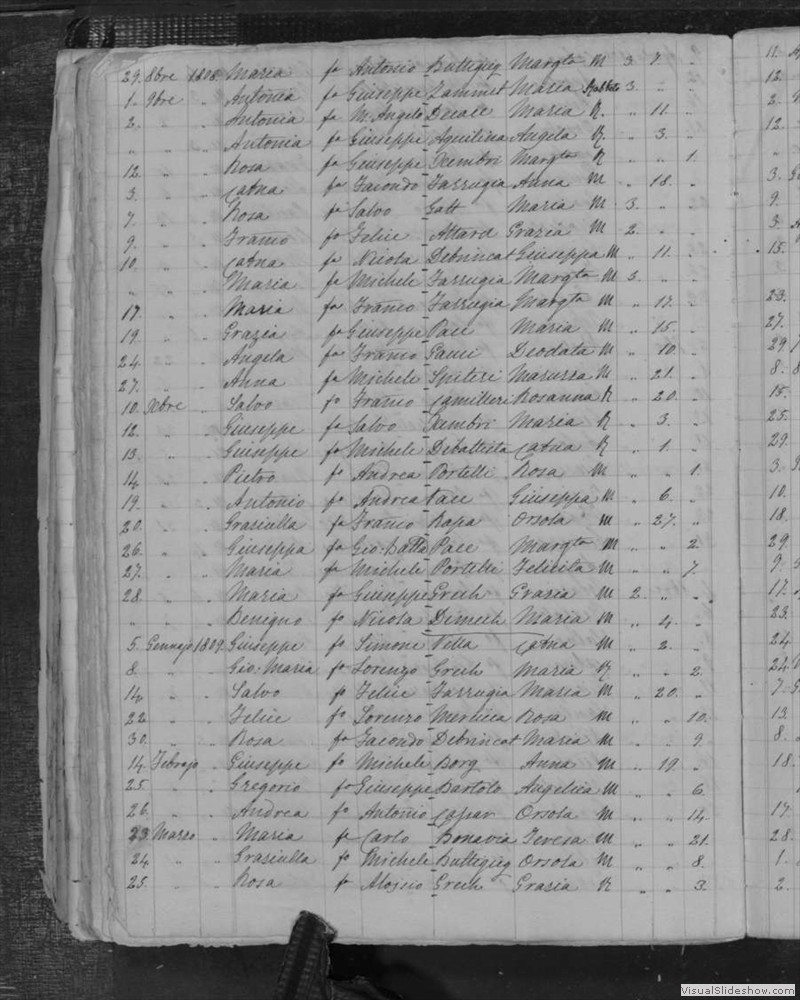 29. 8bre 1808 Maria fa Antonio Buttigieg Margta M 3 7. "
1. 9bre " Antonia fa Giuseppe Zammit Maria Rabbato 3. " "
2. " " Antonia fa M. Angelo Ducale Maria R. " 11. "
" " " Antonia fa Giuseppe Aquilina Angela R " 3. "
12. " " Rosa fa Giuseppe Xembri Margta R " " 1.
3. " " Catna fa Facondo Farrugia Anna M " 18. "
7. " " Rosa fa Salvo Gatt Maria M 3. " "
9. " " Franco fo Felice Attard Grazia M 2. " "
10. " " Catna fa Nicola Debrincat Giuseppa M " 11. "
" " " Maria fa Michele Farrugia Margta M 3. " "
17. " " Maria fa Franco Farrugia Margta M " 17. "
19. " " Grazia fa Giuseppe Pace Maria M " 15. "
24. " " Angela fa Franco Gauci Deodata M " 10. "
27. " " Anna fa Michele Spiteri Maruzza M " 21. "
10. Xbre " Salvo fo Franco Camilleri Rosanna R " 20. "
12. " " Giuseppe fo Salvo Xembri Maria R " 3. "
13. " " Giuseppe fo Michele Debattista Catna R " 1. "
14. " " Pietro fo Andrea Portelli Rosa M " " 1.
19. " " Antonio fo Andrea Pace Giuseppa M " 6. "
20. " " Grasiulla fa Franco Rapa Orsola M " 27. "
26. " " Giuseppa fa Gio: Batta Pace Margta M " " 2.
27. " " Maria fa Michele Portelli Felicita M " " 7.
28. " " Maria fa Giuseppe Grech Grazia M 2. " "
" " " Benigno fo Nicola Dimech Maria M " 4. "
5. Gennajo 1809. Giuseppe fo Simone Vella Catna M " 2. "
8. " " Gio: Maria fo Lorenzo Grech Maria R " " 2.
14. " " Salvo fo Felice Farrugia Maria M " 20. "
22. " " Felice fo Lorenzo Mercieca Rosa M " " 10.
30. " " Rosa fa Facondo Debrincat Maria M " " 9.
14. Febrajo " Giuseppe fo Michele Borg Anna M " 19. "
25. " " Gregorio fo Giuseppe Bartolo Angelica M " " 6.
26. " " Andrea fo Antonio Capar Orsola M " " 14.
23. Marzo " Maria fa Carlo Bonavia Teresa M " " 21.
24 " " Grasiulla fa Michele Buttigieg Orsola M " " 8.
25. " " Rosa fa Aloisio Grech Grazia R " " 3.
11.
12.
2.
12.
3.
9.
3.
15.
23.
27.
29.
8.
15.
25.
29.
3.
10.
18.
29.
9.
17.
23.
24
24.
7.
13
8.
18.
17.
28.
1.
2.
VisualSlideshow.com